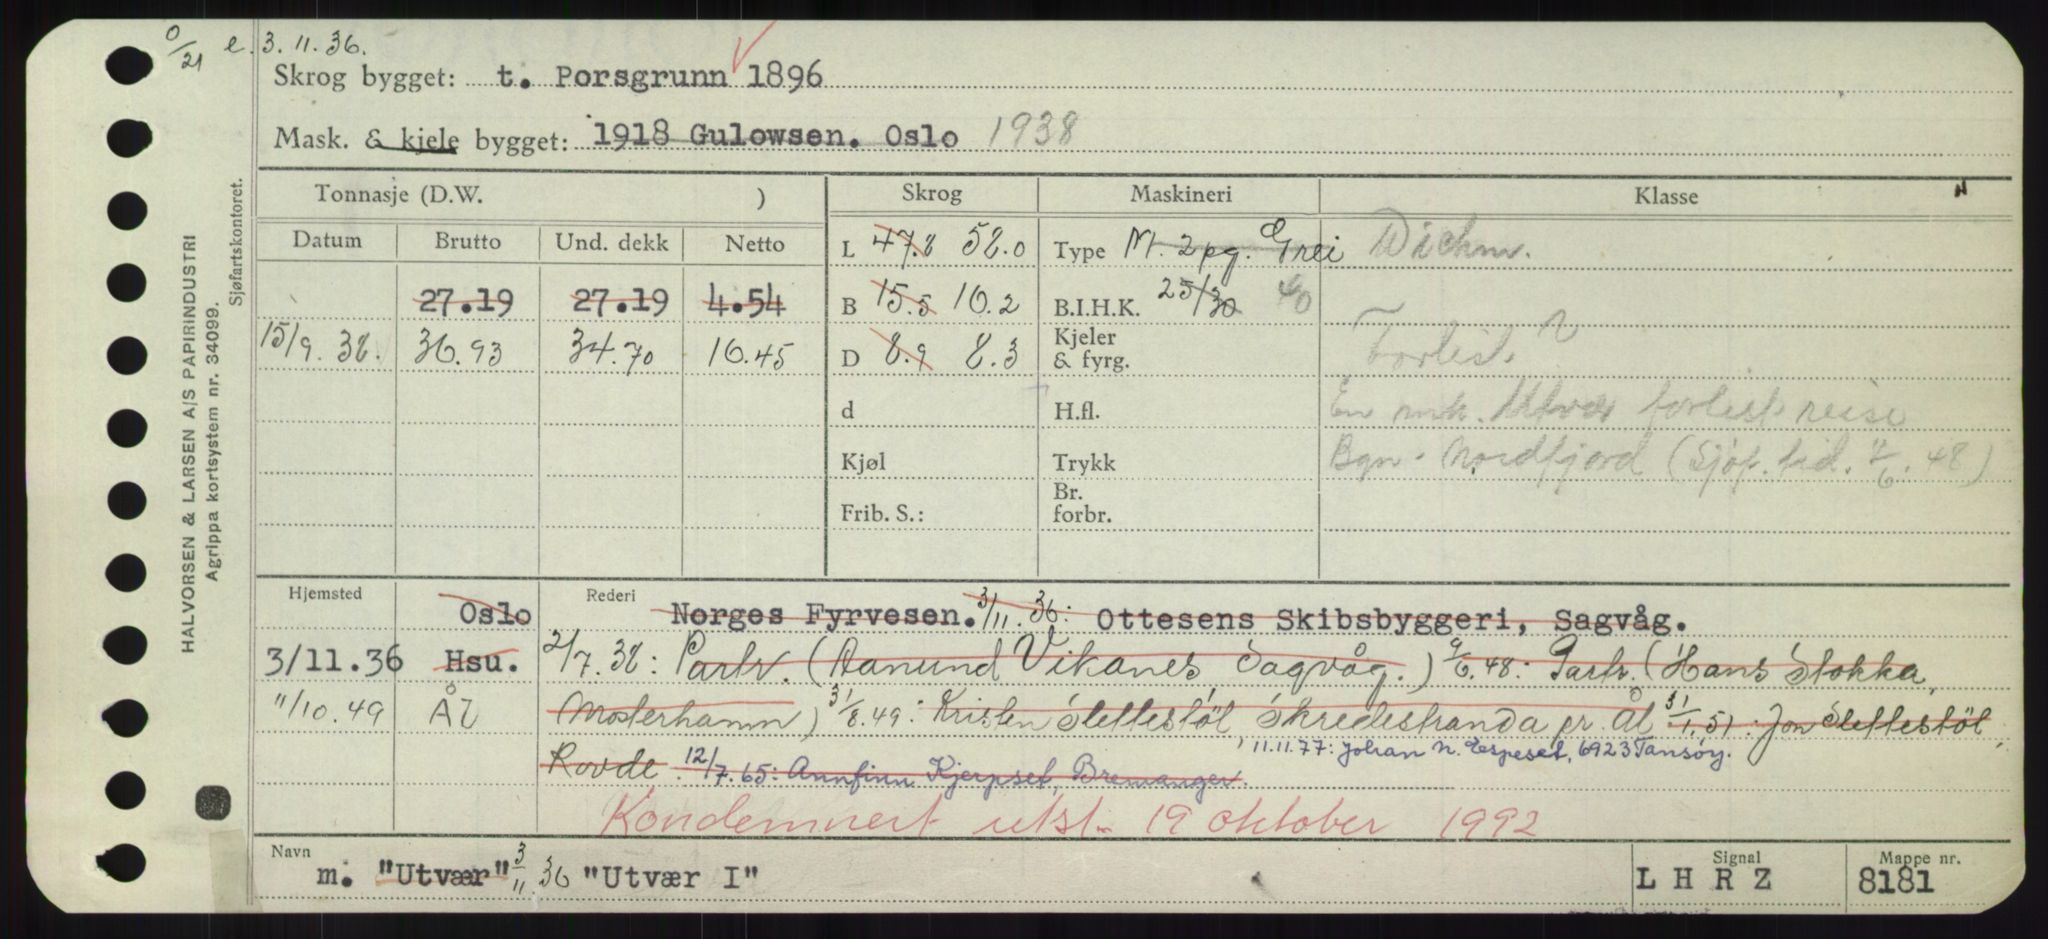 0/21 e. 3.11.36.
Skrog bygget: t. Porsgrunn 1896
Mask. & kjele bygget: 1918 Gulowsen. Oslo 1938
HALVORSEN & LARSEN A/S PAPIRINDUSTRI
Agrippa kortsystem nr. 34099.
Sjøfartskontoret.
Tonnasje (D.W. ) Skrog Maskineri Klasse
Datum Brutto Und. dekk Netto
L 47.8 58.0 Type M. 2 pg. Grei Wichm.
27.19 27.19 4.54 B 15.5 16.2 B.I.H.K. 25/30 40
15/9.38. 36.93 34.70 16.45 D 8.9 8.3 Kjeler & fyrg. Forlist ?
d H.fl. En mk. Utvær forlist reise
Kjøl Trykk Bgn - Nordfjord (Sjøf. tid. 11/6.48)
Frib. S.: Br. forbr.
Hjemsted Oslo Rederi Norges Fyrvesen. 3/11.36: Ottesens Skibsbyggeri, Sagvåg.
3/11.36 Hsu. 21/7.38: Partr. (Aanund Vikanes Sagvåg.) 9/6.48: Partr. (Hans Stokka,
11/10.49 Ål Mosterhamn) 31/8.49: Kristen Slettestøl, Skredestranda pr Ål 31/1.51: Jon Slettestøl,
Rovde. 12/7.65: Annfinn Kjerpset, Bremanger. 11.11.77: Johan N. Espeset, 6923 Tansøy.
Kondemnert utst. 19 oktober 1992
Navn m. "Utvær" 3/11.36 "Utvær I" Signal LHRZ Mappe nr. 8181